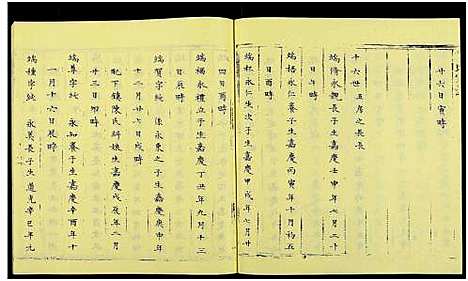 廿六日寅時
十六世五房之長長
端脩永興長子生嘉慶壬申年七月二十
日午時
端栝永仁養子生嘉慶丙寅年十月初五
日酉時
端杯永仁生次子生嘉慶甲戌年七月廿
四日酉時
端楊永禮立子生嘉慶丁丑年九月十三
日辰時
端賀字純 永東之子生嘉慶庚申年
十二月廿七日戌時
配下鎮陳氏 姑生嘉慶戊辰年二月
廿三日卯時
端尊字純 永知養子生嘉慶辛酉年十
一月十六日辰時
端種字純 永美長子生道光辛巳年九